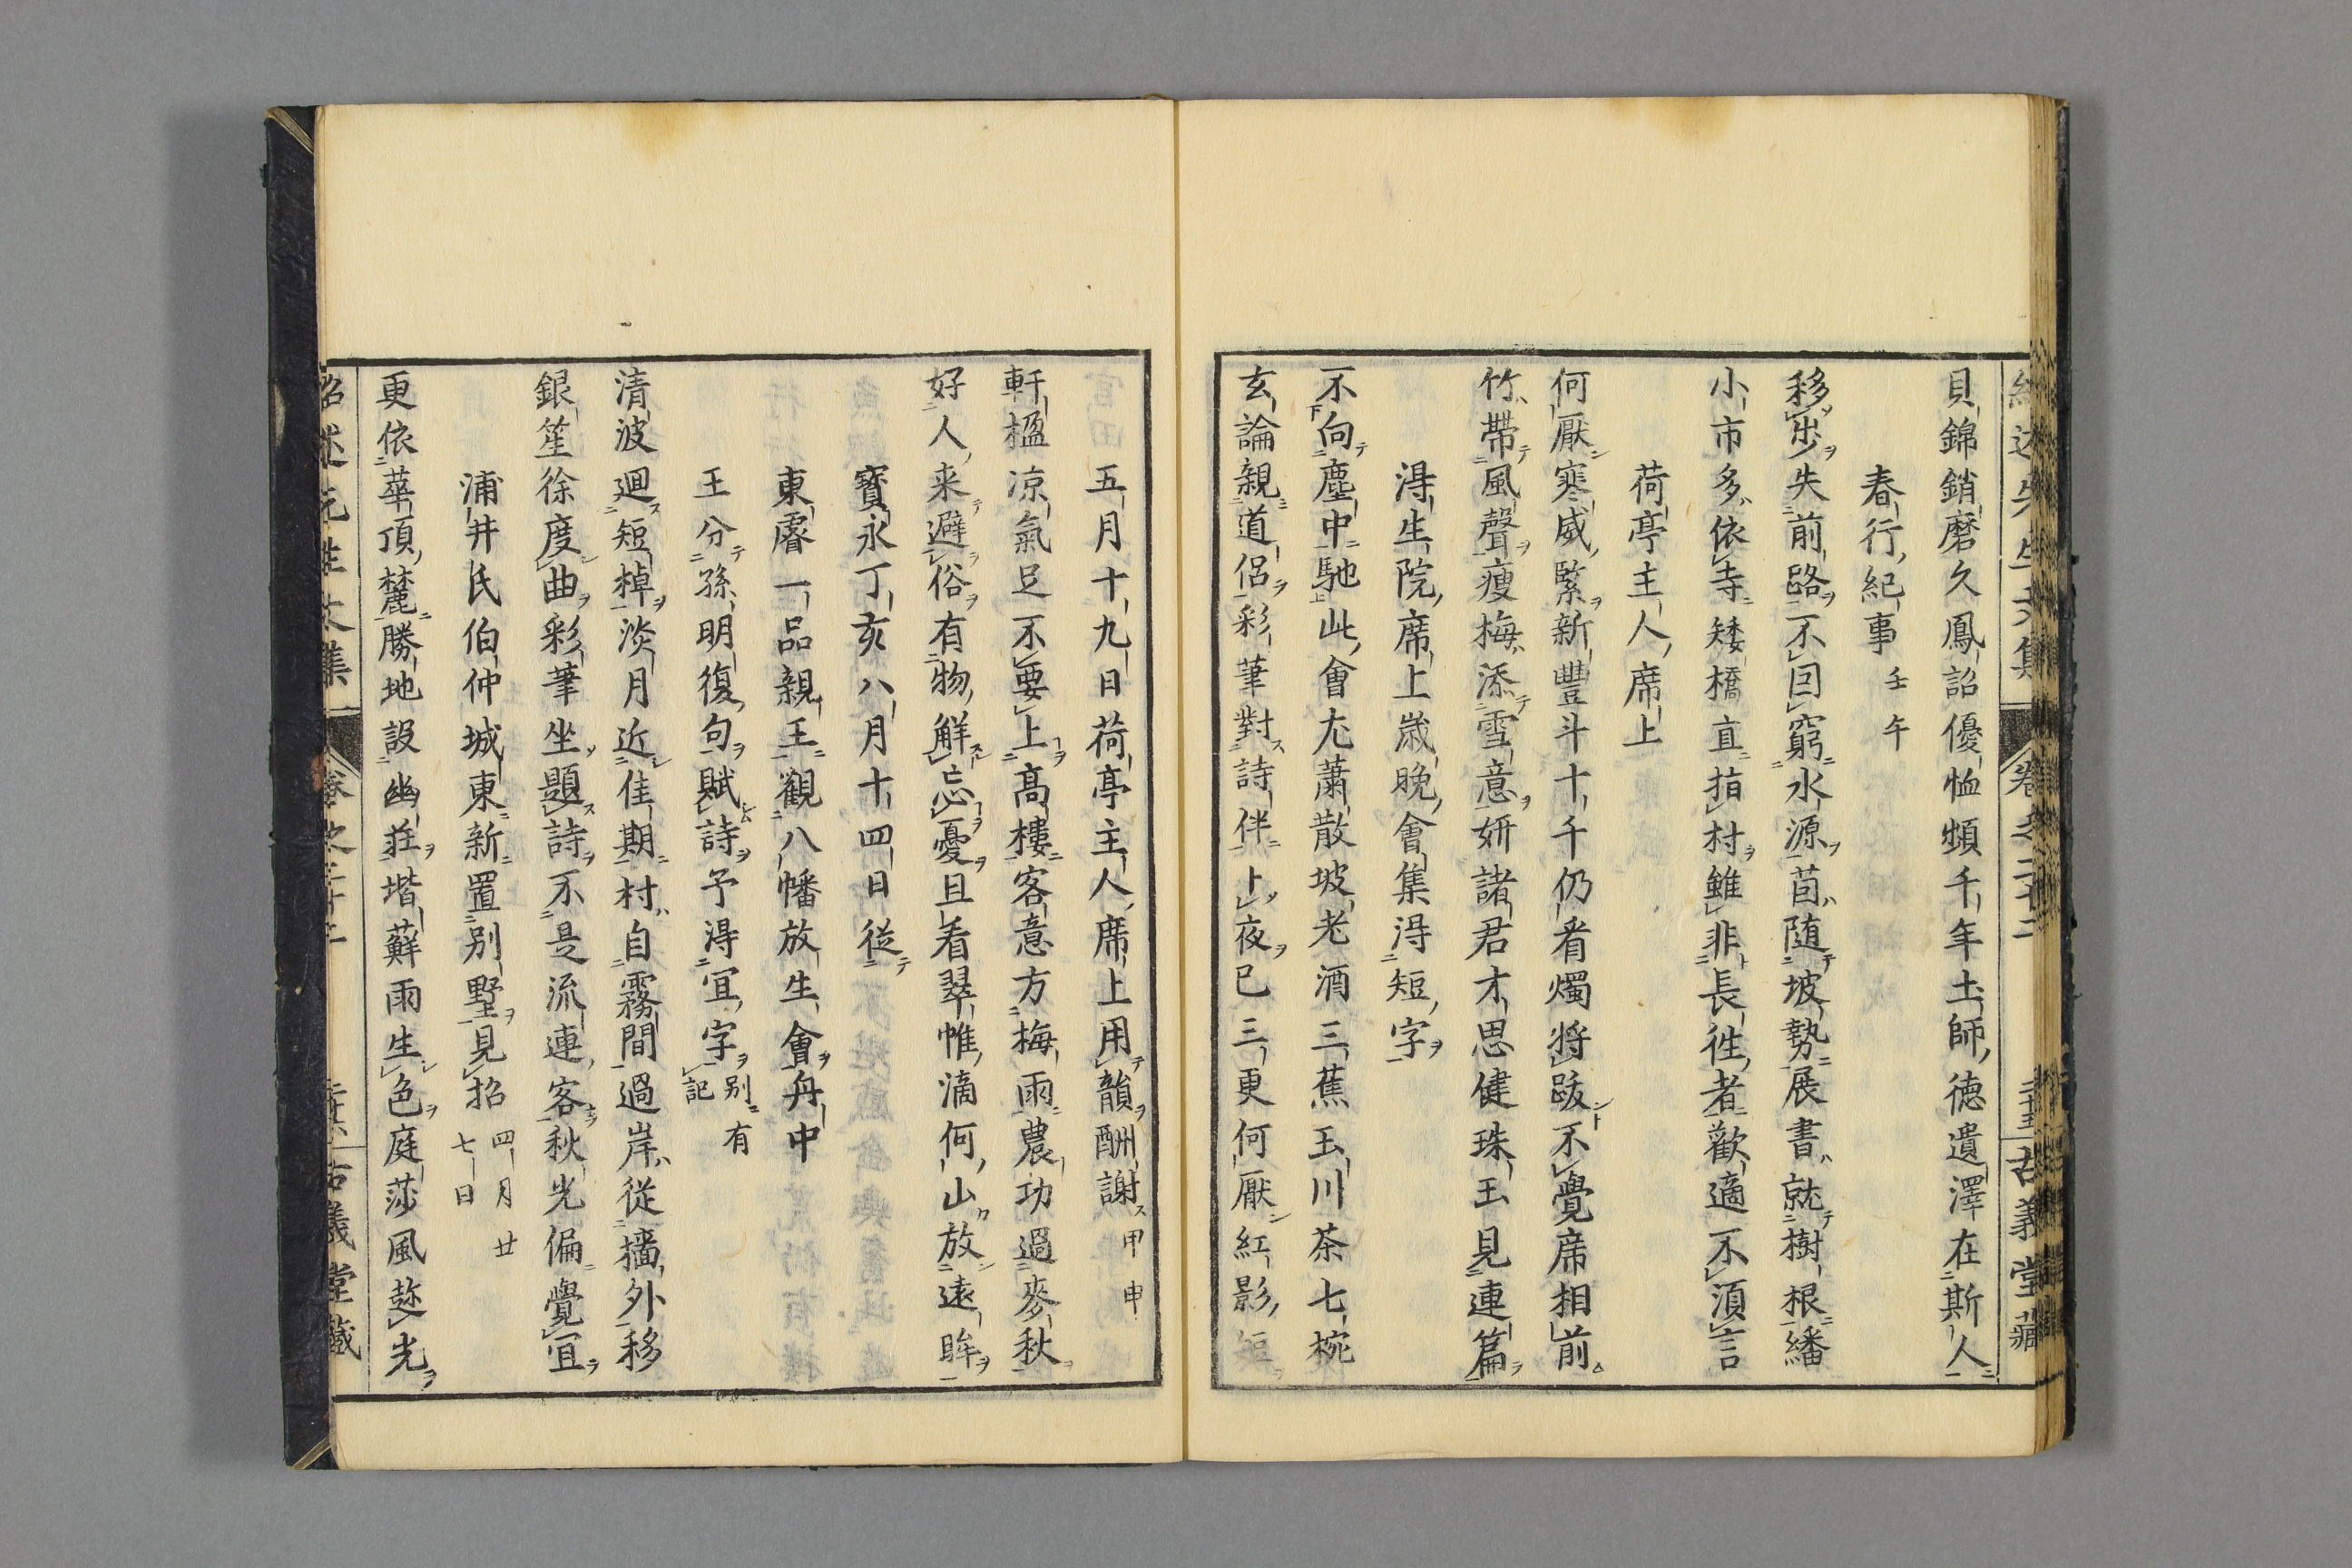 貝錦銷磨久鳳詔優恤頻千年土師德遺澤在斯人
春行紀事 壬午
移步失前路不回窮水源苣隨坡勢展書就樹根繙
小市多依寺矮橋直指村雖非長徃者歡適不須言
荷亭主人席上
何厭寒威緊新豐斗十千仍看燭將跋不覺席相前
竹帶風聲瘦梅添雪意妍諸君才思健珠玉見連篇
淂生院席上歲晚會集淂短字
不向塵中馳此會尤蕭散坡老酒三蕉玉川茶七椀
玄論親道侶彩筆對詩伴卜夜已三更何厭紅影短
五月十九日荷亭主人席上用韻酬謝 甲申
軒楹凉氣足不要上高樓客意方梅雨農功過麥秋
好人来避俗有物解忘憂且看翠帷滴何山放遠眸
寳永丁亥八月十四日從
東叡一品親王觀八幡放生會舟中
王分孫明復句賦詩予淂宜字 別有記
清波迴短棹淡月近佳期村自霧間過岸從墻外移
銀笙徐度曲彩筆坐題詩不是流連客秋光偏覺宜
浦井氏伯仲城東新置別墅見招 四月廿七日
更依華頂麓勝地設幽莊堦蘚雨生色庭莎風趂光
古義堂藏